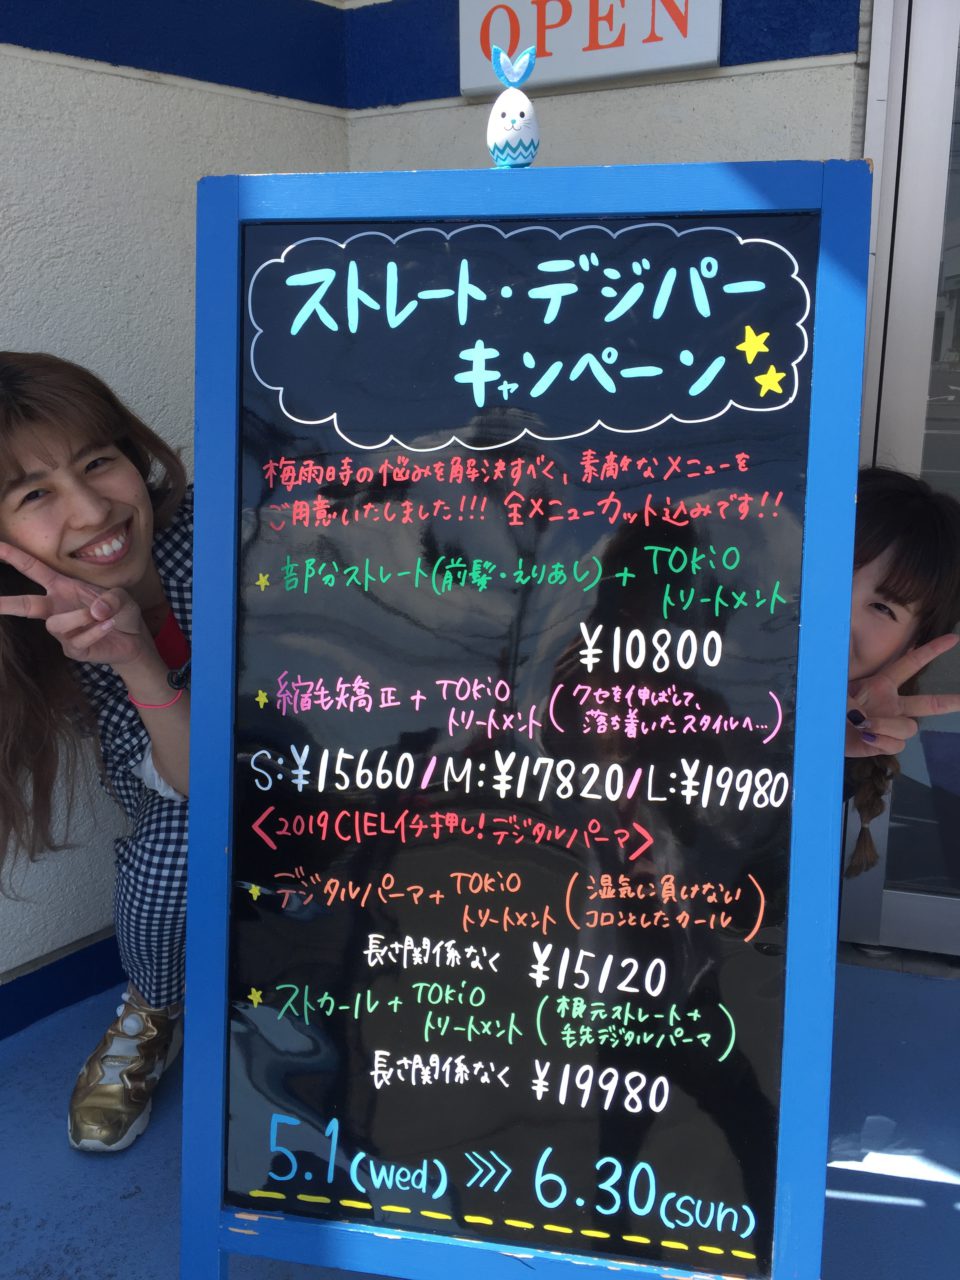 OPEN
ストレート・デジパー
キャンペーン
梅雨時の悩みを解決すべく、素敵なメニューを
ご用意いたしました!!! 全メニューカット込みです!!
部分ストレート(前髪・えりあし) + TOKiO
トリートメント
¥10800
縮毛矯正 + TOKiO
トリートメント
(クセを伸ばして、
落ち着いたスタイルへ…)
S:¥15660/M:¥17820/L:¥19980
<2019 CIELイチ押し! デジタルパーマ>
デジタルパーマ + TOKiO
トリートメント
(湿気に負けない
コロンとしたカール)
長さ関係なく ¥15120
ストカール + TOKiO
トリートメント
(根元ストレート +
毛先デジタルパーマ)
長さ関係なく ¥19980
5.1(wed) >>> 6.30(sun)